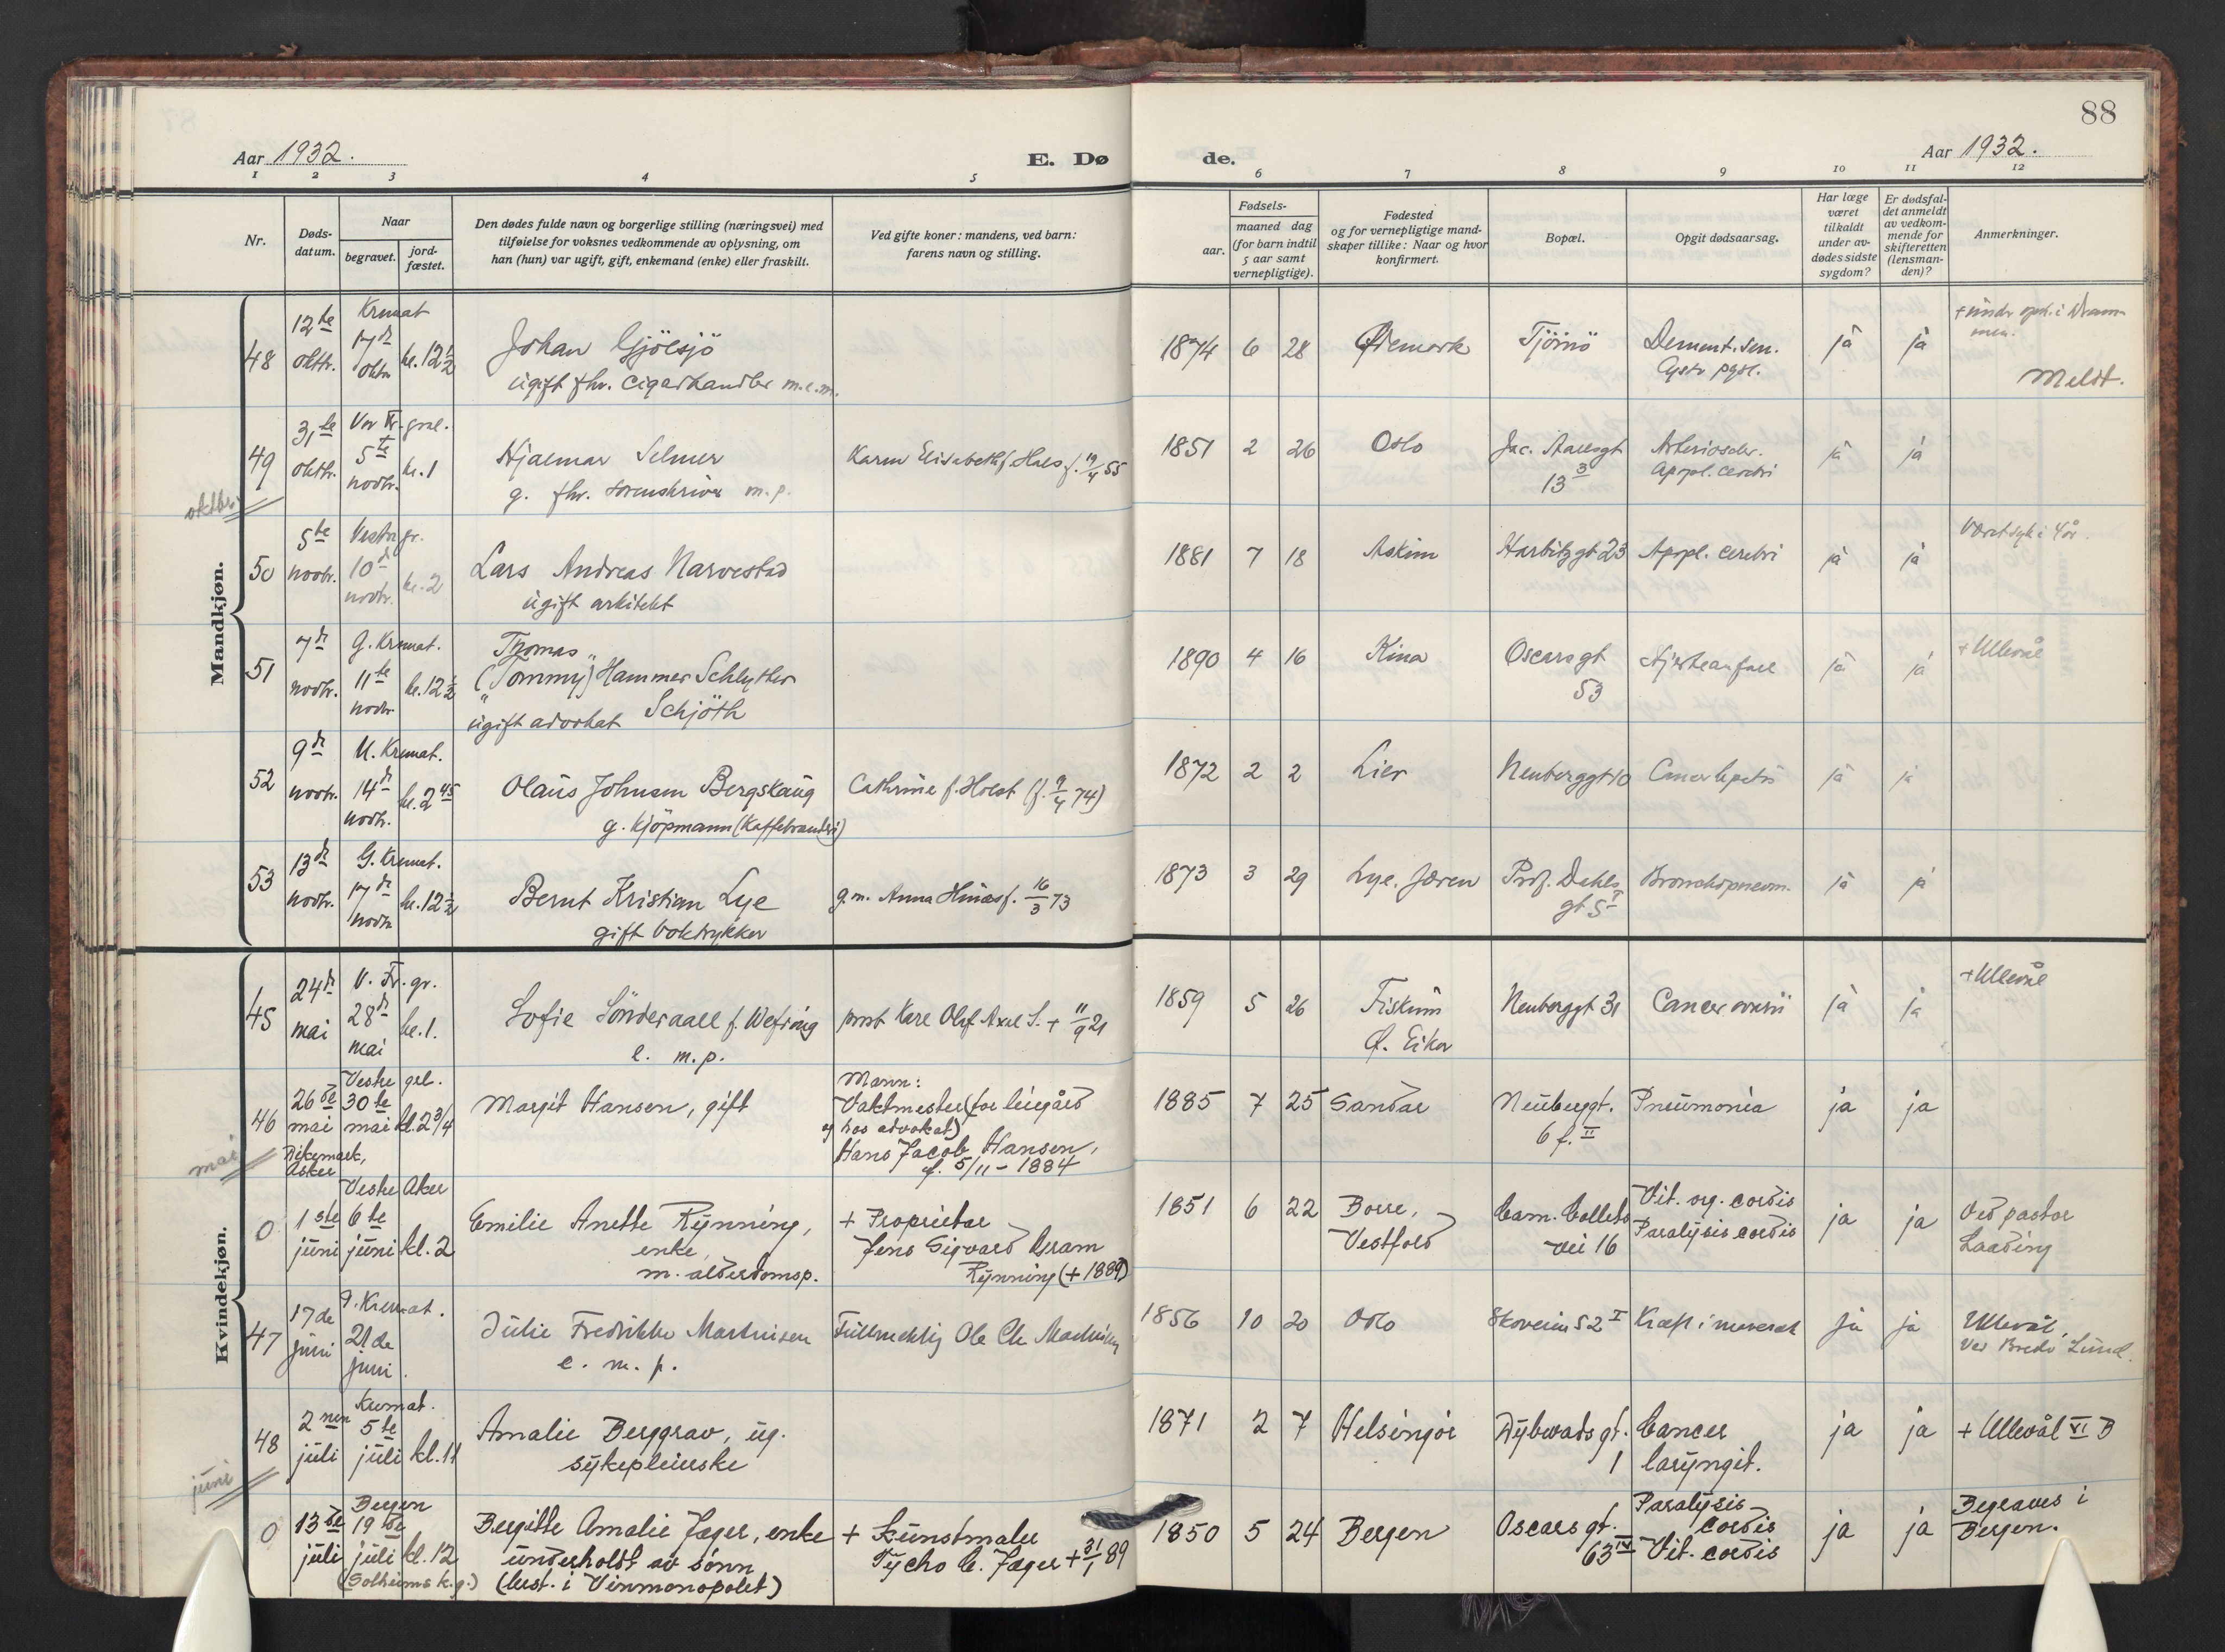 88
Aar 1932.
E. Dø
de.
Aar 1932.
1 2 3 4 5 6 7 8 9 10 11 12
Nr.
Døds-
datum.
Naar
begravet.
jord-
fæstet.
Den dødes fulde navn og borgerlige stilling (næringsvei) med
tilføielse for voksnes vedkommende av oplysning, om
han (hun) var ugift, gift, enkemand (enke) eller fraskilt.
Ved gifte koner: mandens, ved barn:
farens navn og stilling.
Fødsels-
aar.
maaned dag
(for barn indtil
5 aar samt
vernepligtige).
Fødested
og for vernepligtige mand-
skaper tillike: Naar og hvor
konfirmert.
Bopæl.
Opgit dødsaarsag.
Har læge
været
tilkaldt
under av-
dødes sidste
sygdom?
Er dødsfal-
det anmeldt
av vedkom-
mende for
skifteretten
(lensman-
den)?
Anmerkninger.
Mandkjøn.
48
12te
oktr.
Kremat
17d
oktr
kl. 12½
Johan Gjölsjö
ugift fhv. cigarhandler m.e.m.
1874 6 28
Öiemark
Tjömö
Dement. sen.
ja ja
Meldt.
49
31te
oktbr.
Vor Fr. grl.
5te
novbr.
kl. 1
Hjalmar Selmer
g. fhv. sorenskriver m.p.
Karen Elisabeth f. Hals f. 19/4 55
1851 2 26
Oslo
Jac. Aallsgt
13 3
Arterioscler.
Appl. cerebri
ja ja
oktbr.
50
5te
novbr.
Vestre gr.
10d
novbr.
kl. 2
Lars Andreas Narvestad
ugift arkitekt
1881 7 18
Askim
Harbitzgt 23
Appl. cerebri
ja ja
Været syk i 4 år.
51
7d
novbr.
G. Kremat.
11te
novbr.
kl. 12½
Thomas
("Tommy") Hammer Schlytter
Schjöth
ugift advokat
1890 4 16
Kina
Oscarsgt
53
Hjerteanfall
ja ja
+ Ullevål
52
9d
novbr.
N. Kremat.
14d
novbr.
kl. 2 45
Olaus Johnsen Bergskaug
g. kjöpmann (Kaffebrenderi)
Cathrine f. Holst (f. 9/4 74)
1872 2 2
Lier
Neuberggt 10
Cancer hepatis
ja ja
53
13d
novbr.
G. Kremat.
17d
novbr
kl. 12½
Bernt Kristian Lye
gift boktrykker
g. m. Anna Hinæs f. 16/3 73
1873 3 29
Lye. Jæren
Prof. Dahls
gt 5 I
Bronchopneum.
ja ja
Kvindekjøn.
45
24d
mai
V. Fr. gr.
28d
mai
kl. 1.
Sofie Sönderaall f. Wefring
e. m.p.
prost Karl Oluf Axel S. + 11/9 21
1859 5 26
Fiskum
Ø. Eiker
Neuberggt 31
Cancer ovarii
ja ja
+ Ullevål
46
26de
mai
Dikemark,
Asker
Vestre grl.
30te
mai
kl. 2 3/4
Margit Hansen, gift
Mann:
Vaktmester (for leiegård
og hos advokat)
Hans Jacob Hansen,
f. 5/11 - 1884
1885 7 25
Sandar
Neubergt.
6 f. II
Pneumonia
ja ja
mai
0
1ste
juni
Vestre Aker
6te
juni
kl. 2
Emilie Anette Rynning,
enke,
m. alderdomsp.
+ Proprietær
Jens Sigvard Gram
Rynning (+ 1889)
1851 6 22
Borre,
Vestfold
Cam. Colletts
vei 16
Vit. org. cordis
Paralysis cordis
ja ja
Ved pastor
Laading
47
17de
juni
G. Kremat.
21de
juni.
Julie Fredrikke Martinisen
e. m. p.
Fullmektig Ole Chr Martinisen
1856 10 20
Oslo
Skoveien 52 I
Kræft i mavesæk
ja ja
Ullevål,
Ved Bredo Lund.
48
2nen
juli
Kremat.
5te
juli
kl. 11
Amalie Berggrav, ug.
sykepleierske
1871 2 7
Helsingör
Dybwadsgt.
1
Cancer
laryngit.
ja ja
+ Ullevål VI B
juni
0
13de
juli
Bergen
19de
juli
kl. 12
(Solheims k.g.)
Bergitte Amalie Jæger, enke
underholdt av sønn
(best. i Vinmonopolet)
+ Kunstmaler
Tycho C. Jæger + 31/1 89
1850 5 24
Bergen
Oscarsgt.
63 IV
Paralysis
cordis
Vit. cordis
ja ja
Begraves i
Bergen.